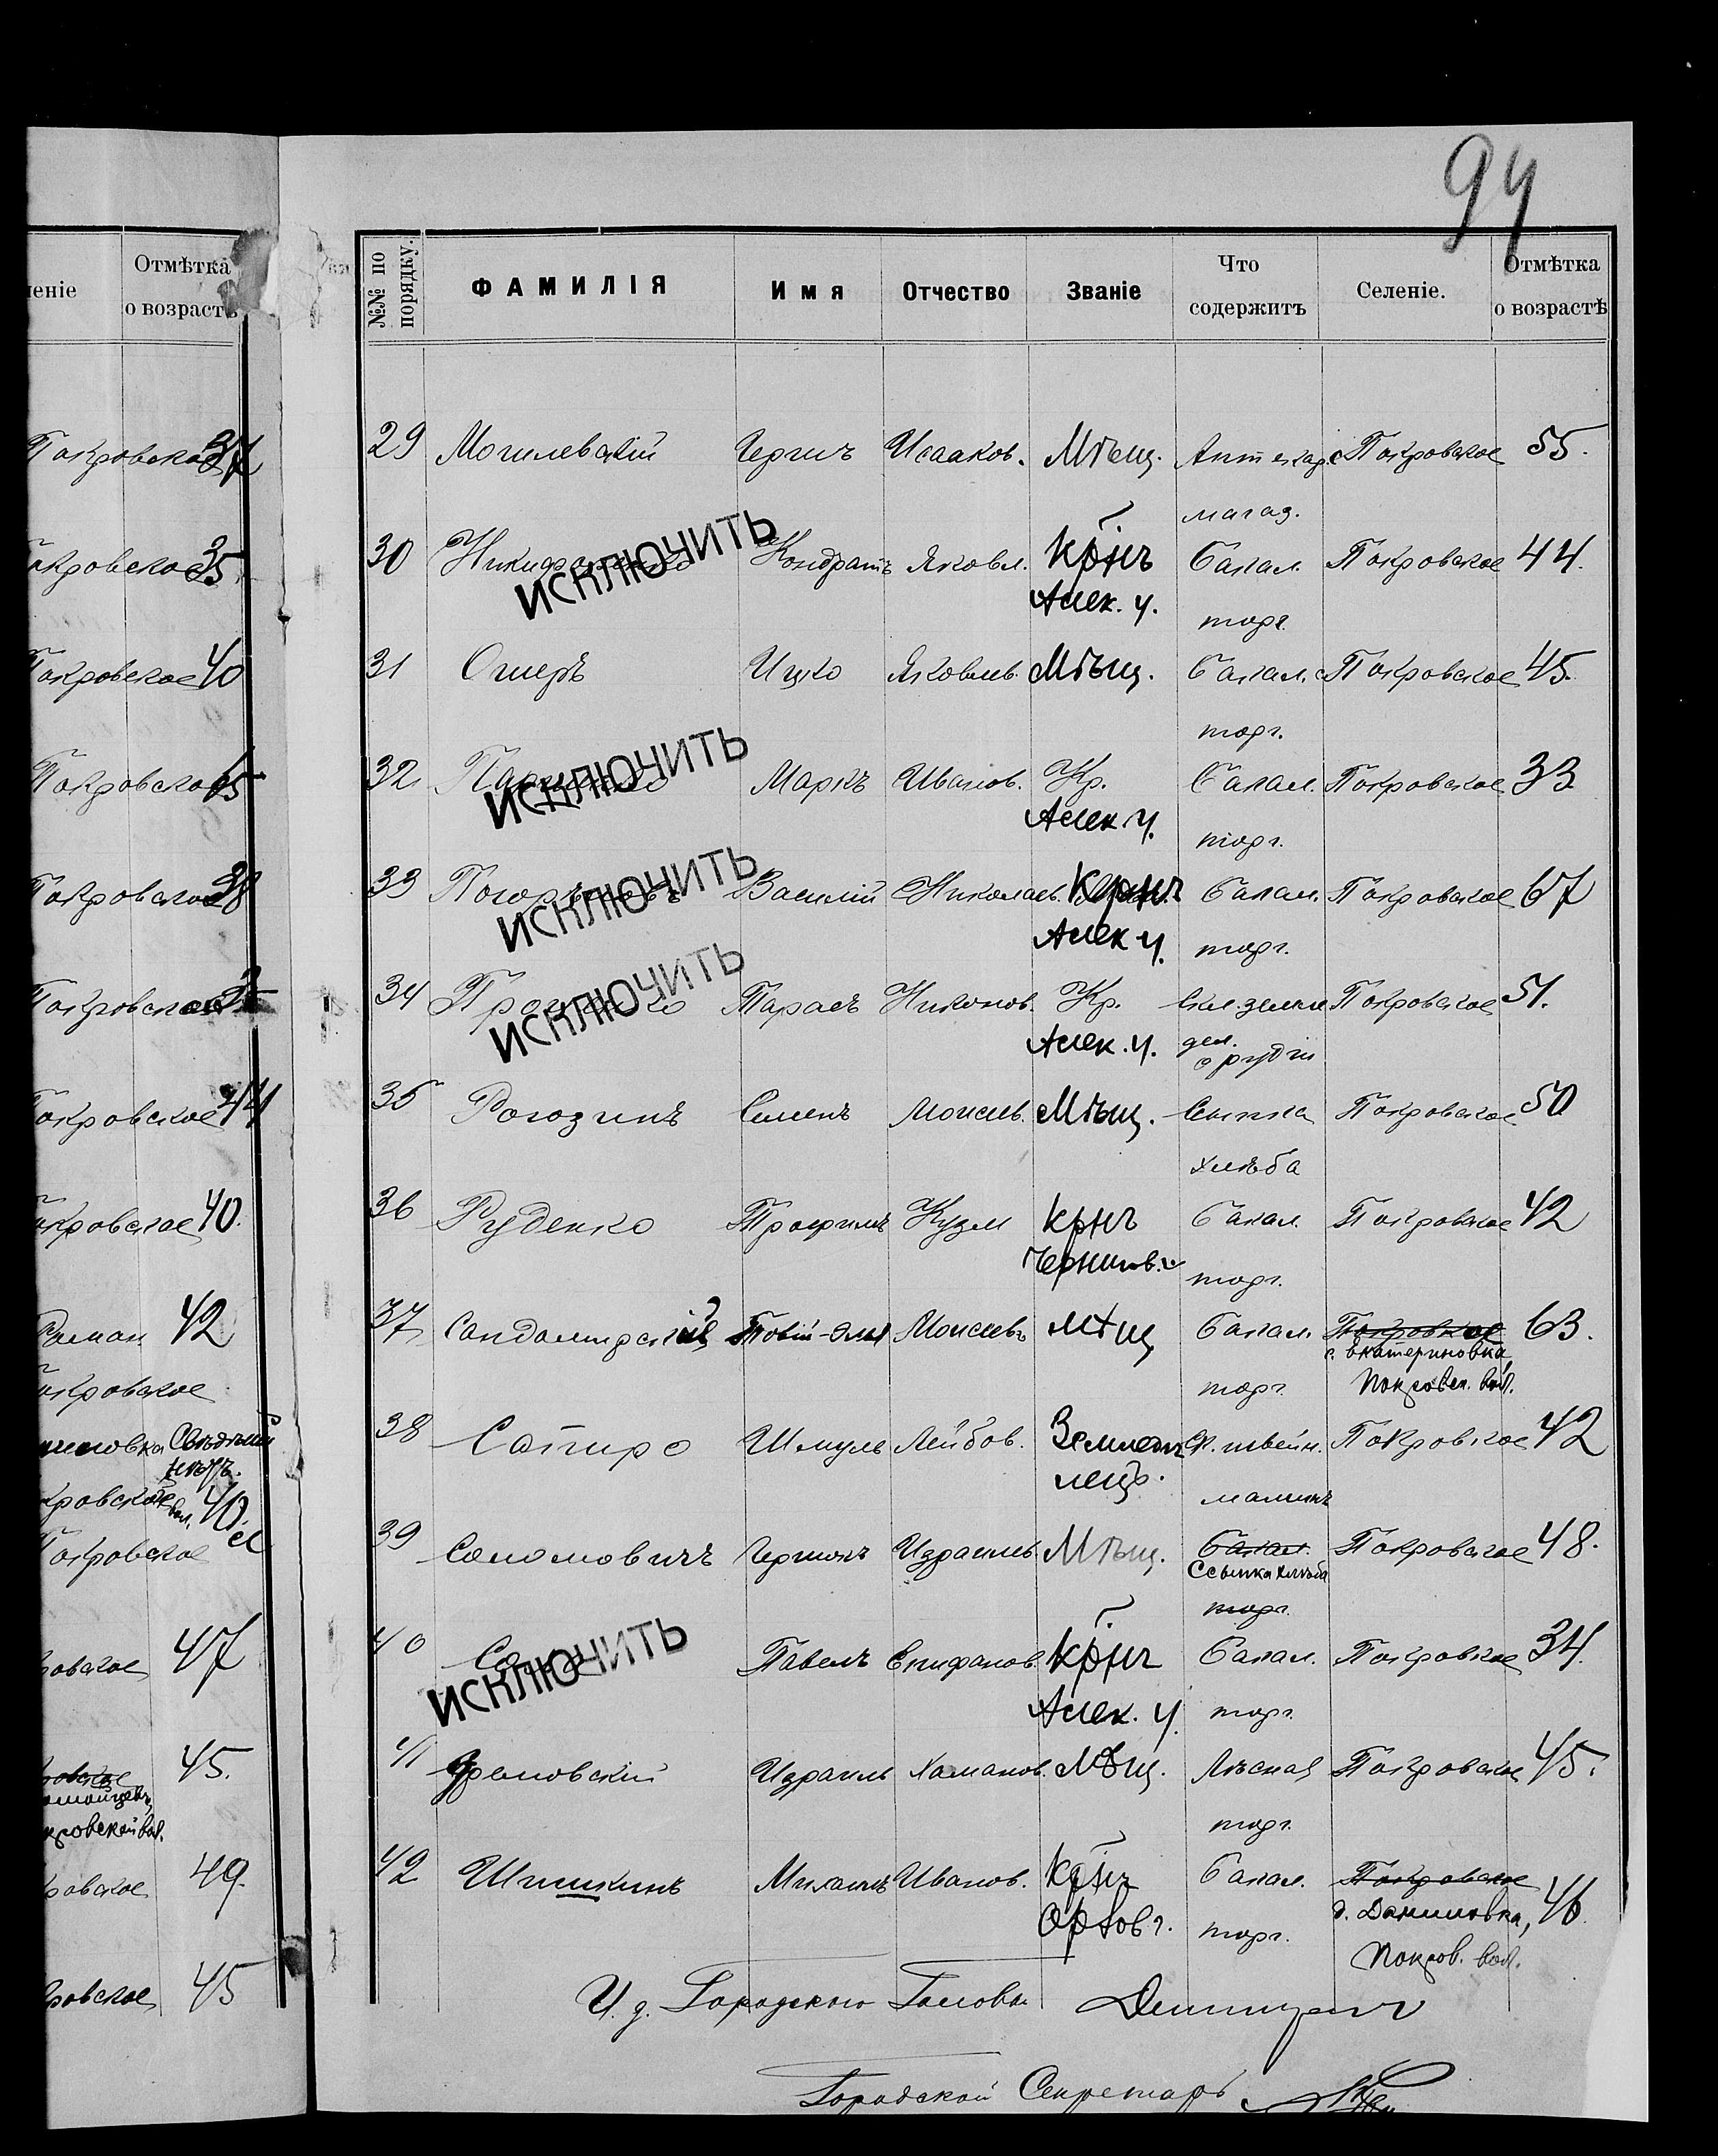 94
леніе
Отмѣтка
о возрастѣ
Покровское 37
Покровское 35
Покровское 40
Покровское 65
Покровское 38
Покровское
Покровское 44
Покровское 40.
42
Покровское
Свѣдѣній
нѣтъ.
Покровское 40
Покровское
47
45.
49.
45
№№ по порядку. ФАМИЛІЯ Имя Отчество Званіе Что содержитъ Селеніе. Отмѣтка о возрастѣ
29 Могилевскій Герш Исааков. Мѣщ. Аптекарс Покровское 55.
магаз.
30 Никифоренко Кондратъ Яковл. Крнъ Бакал. Покровское 44.
ИСКЛЮЧИТЬ
Алек. у. торг.
31 Ошеръ Ицко Яковлев. Мѣщ. Бакал. Покровское 45.
торг.
32 Маркъ Иванов. Кр. Бакал. Покровское 33
ИСКЛЮЧИТЬ
Алек. у. торг.
33 Василій Николаев. Крнъ Бакал. Покровское 67
ИСКЛЮЧИТЬ
Алек у. торг.
34 Тарасъ Никонов. Кр. Покровское 51.
ИСКЛЮЧИТЬ
Алек. у. орудій
35 Рогозинъ Семенъ Моисеев. Мѣщ. Ссыпка Покровское 50
хлѣба
36 Руденко Трофимъ Кузм Крнъ Бакал. Покровское 42
Чернигов. торг.
37 Сандомирскій Товій-Элья Моисеевъ Мѣщ Бакал. Покровское 63.
с. Екатериновка,
торг. Покровск. вол.
38 Сапиро Шмуль Лейбов. Землевл Ск. швейн. Покровское 42
машинъ
39 Соломовичъ Гершонъ Израилев. Мѣщ. Бакал. Покровское 48.
Ссыпка хлѣба
торг.
40 Павелъ Епифанов. Крнъ Бакал. Покровское 34.
ИСКЛЮЧИТЬ
Алек. у. торг.
41 Израиль Хаманов. Мѣщ. Лѣсная Покровское 45.
торг.
42 Шишкинъ Михаилъ Иванов. Крнъ Бакал. Покровское 46.
д. Даниловка,
Орлов г. торг.
Покров. вол.
И. д. Городского Головы
Городской Секретарь